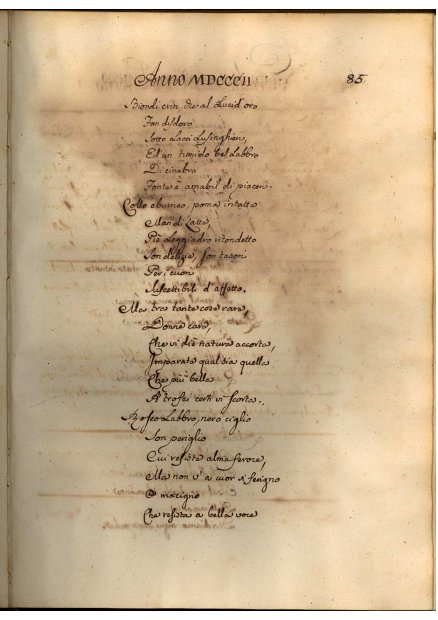 Anno MDCCCII 85
Biondi crin, che al lucid'oro
Fan disdoro
Sotto lacci lusinghieri,
Ed un tumido bel labbro
Di cinabro
Fonte è amabil di piaceri.
Collo eburneo, poma intatte
Man di latte,
Piè leggiadro ritondetto
Son delizia, son tesori
Per i cuori
Suscettibili d'affetto.
Ma tra tante cose rare,
Donne care,
Che vi diè natura accorta,
Imparate qual sia quella
Che più bella
A trofei certi vi scorta.
Roseo labbro, nero ciglio
Son periglio
Cui resiste alma feroce,
Ma non v'è cuor sì ferigno
O macigno
Che resista a bella voce